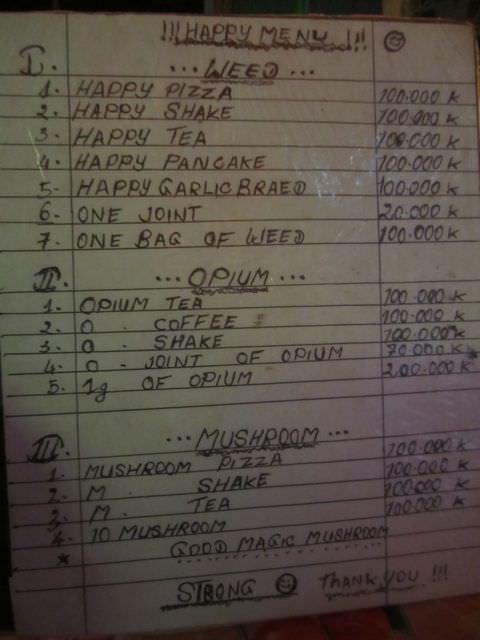 !!!HAPPY MENU !!! ☺
I. ... WEED ...
1. HAPPY PIZZA 100.000 K
2. HAPPY SHAKE 100.000 K
3. HAPPY TEA 100.000 K
4. HAPPY PANCAKE 100.000 K
5. HAPPY GARLIC BRAED 100.000 K
6. ONE JOINT 20.000 K
7. ONE BAG OF WEED 100.000 K
II. ... OPIUM ...
1. OPIUM TEA 100.000 K
2. O . COFFEE 100.000 K
3. O . SHAKE 100.000 K
4. O . JOINT OF OPIUM 70.000 K
5. 1g OF OPIUM 200.000 K
III. ... MUSHROOM ...
1. MUSHROOM PIZZA 100.000 K
2. M . SHAKE 100.000 K
3. M . TEA 100.000 K
4. 10 MUSHROOM 100.000 K
* GOOD MAGIC MUSHROOM
STRONG ☺ THANK YOU !!!